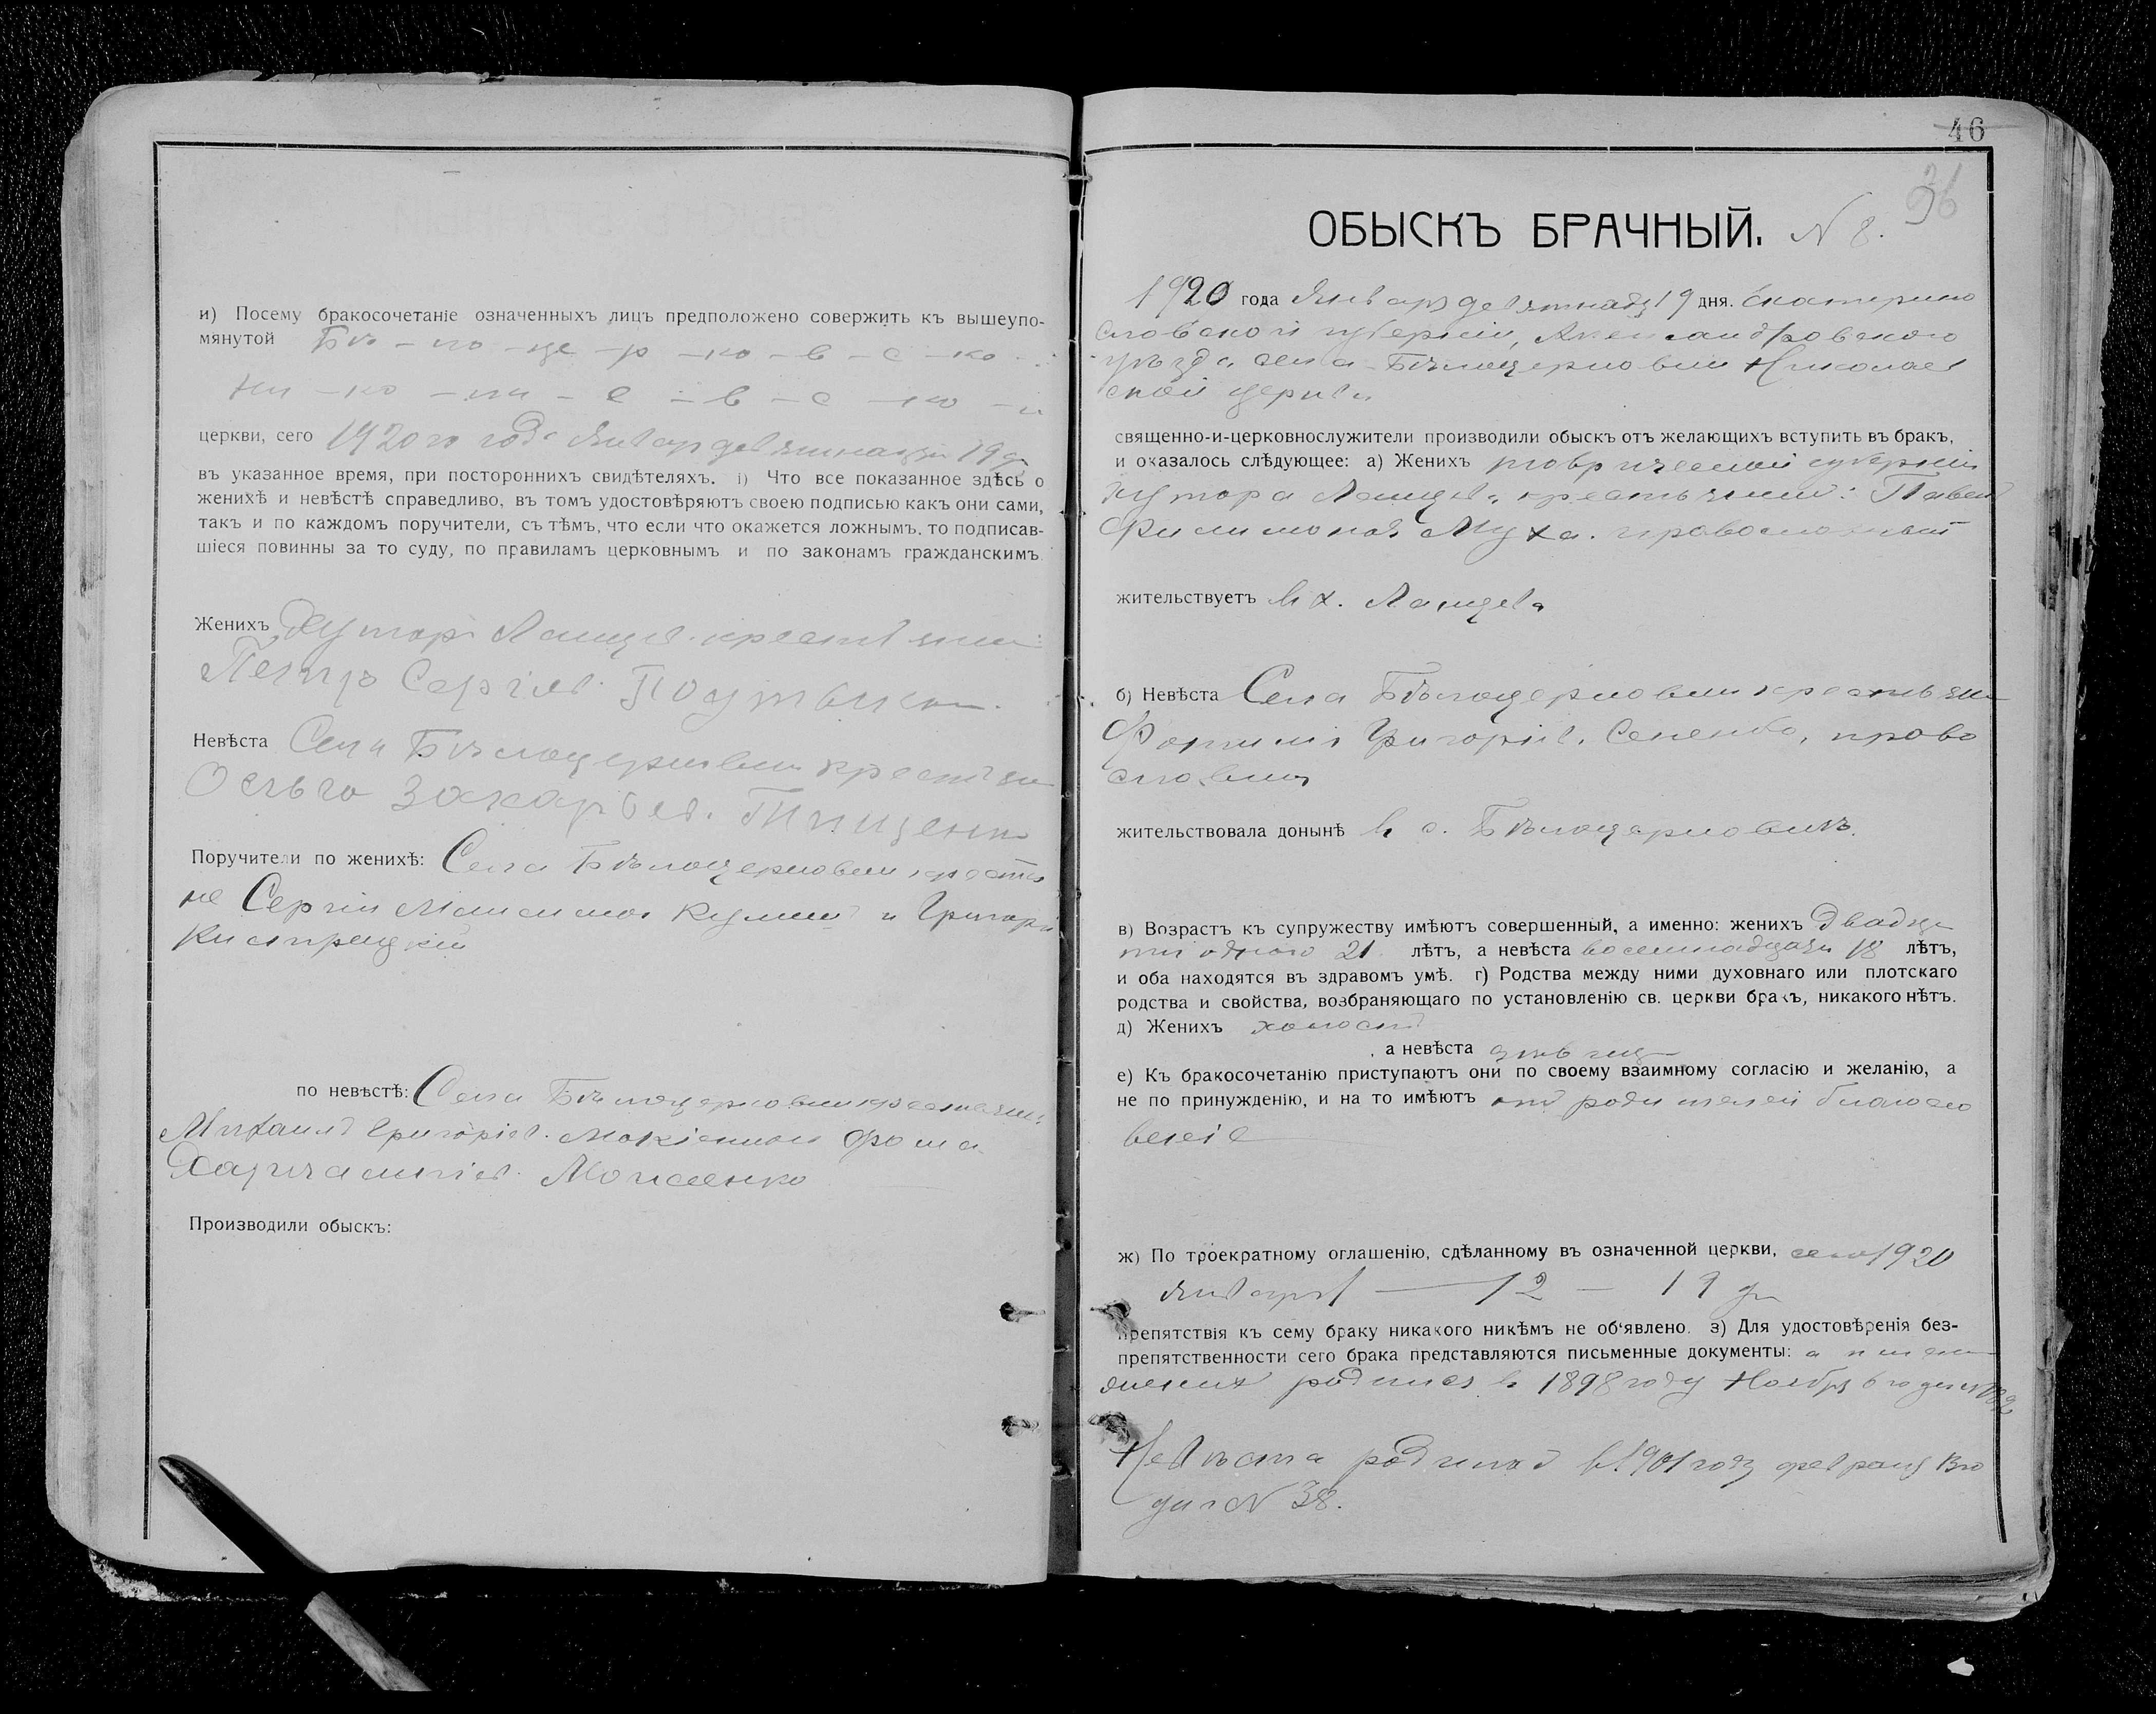 и) Посему бракосочетаніе означенныхъ лицъ предположено совержить къ вышеупо-
мянутой Бѣ - ло - це - р - ко - в - с - ко -
Ни - ко - ла - е - в - с - ко - й
церкви, сего 1920го года Январ девятнадца 19 дн
въ указанное время, при постороннихъ свидѣтеляхъ. і) Что все показанное здѣсь о
женихѣ и невѣстѣ справедливо, въ томъ удостовѣряютъ своею подписью какъ они сами,
такъ и по каждомъ поручители, съ тѣмъ, что если что окажется ложнымъ, то подписав-
шіеся повинны за то суду, по правиламъ церковнымъ и по законамъ гражданскимъ.
Женихъ Хутор крестьянин
Петръ Сергіев.
Невѣста Села Бѣлоцерковки крестьян
Захарьев. Тищенко
Поручители по женихѣ: Села Бѣлоцерковки крестья
не Сергій Максимов и Григорій
по невѣстѣ: Села Бѣлоцерковки крестьяни
Михаилъ Григоріев. Фома
Харлампіев. Моисеенко
Производили обыскъ:
46
36
ОБЫСКЪ БРАЧНЫЙ. N 8.
1920 года Январ девятнадц 19 дня. Екатерино
славской губерніи, Александровского
уѣзда села Бѣлоцерковки Николаев
ской церкви
священно-и-церковнослужители производили обыскъ отъ желающихъ вступить въ бракъ,
и оказалось слѣдующее: а) Женихъ таврической губерніи
хутора крестьянин: Павел
Филимонов Муха. православный
жительствуетъ в х.
б) Невѣста Села Бѣлоцерковки крестьян
Григоріев. православная
жительствовала донынѣ в с. Бѣлоцерковкѣ.
в) Возрастъ къ супружеству имѣютъ совершенный, а именно: женихъ двадца
ти одного 21 лѣтъ, а невѣста восемнадцати 18 лѣтъ,
и оба находятся въ здравомъ умѣ. г) Родства между ними духовнаго или плотскаго
родства и свойства, возбраняющаго по установленію св. церкви бракъ, никакого нѣтъ.
д) Женихъ холост
, а невѣста дѣвица
е) Къ бракосочетанію приступаютъ они по своему взаимному согласію и желанію, а
не по принужденію, и на то имѣютъ от родителей благосло
веніе
ж) По троекратному оглашенію, сдѣланному въ означенной церкви, сего 1920
Января — 12 — 19 дн
препятствія къ сему браку никакого никѣмъ не об'явлено. з) Для удостовѣренія без-
препятственности сего брака представляются письменные документы: а
жених родился в 1898 году Ноября 6го дня
Невѣста родилас в 1901 году феврал 13го
дня N 38.